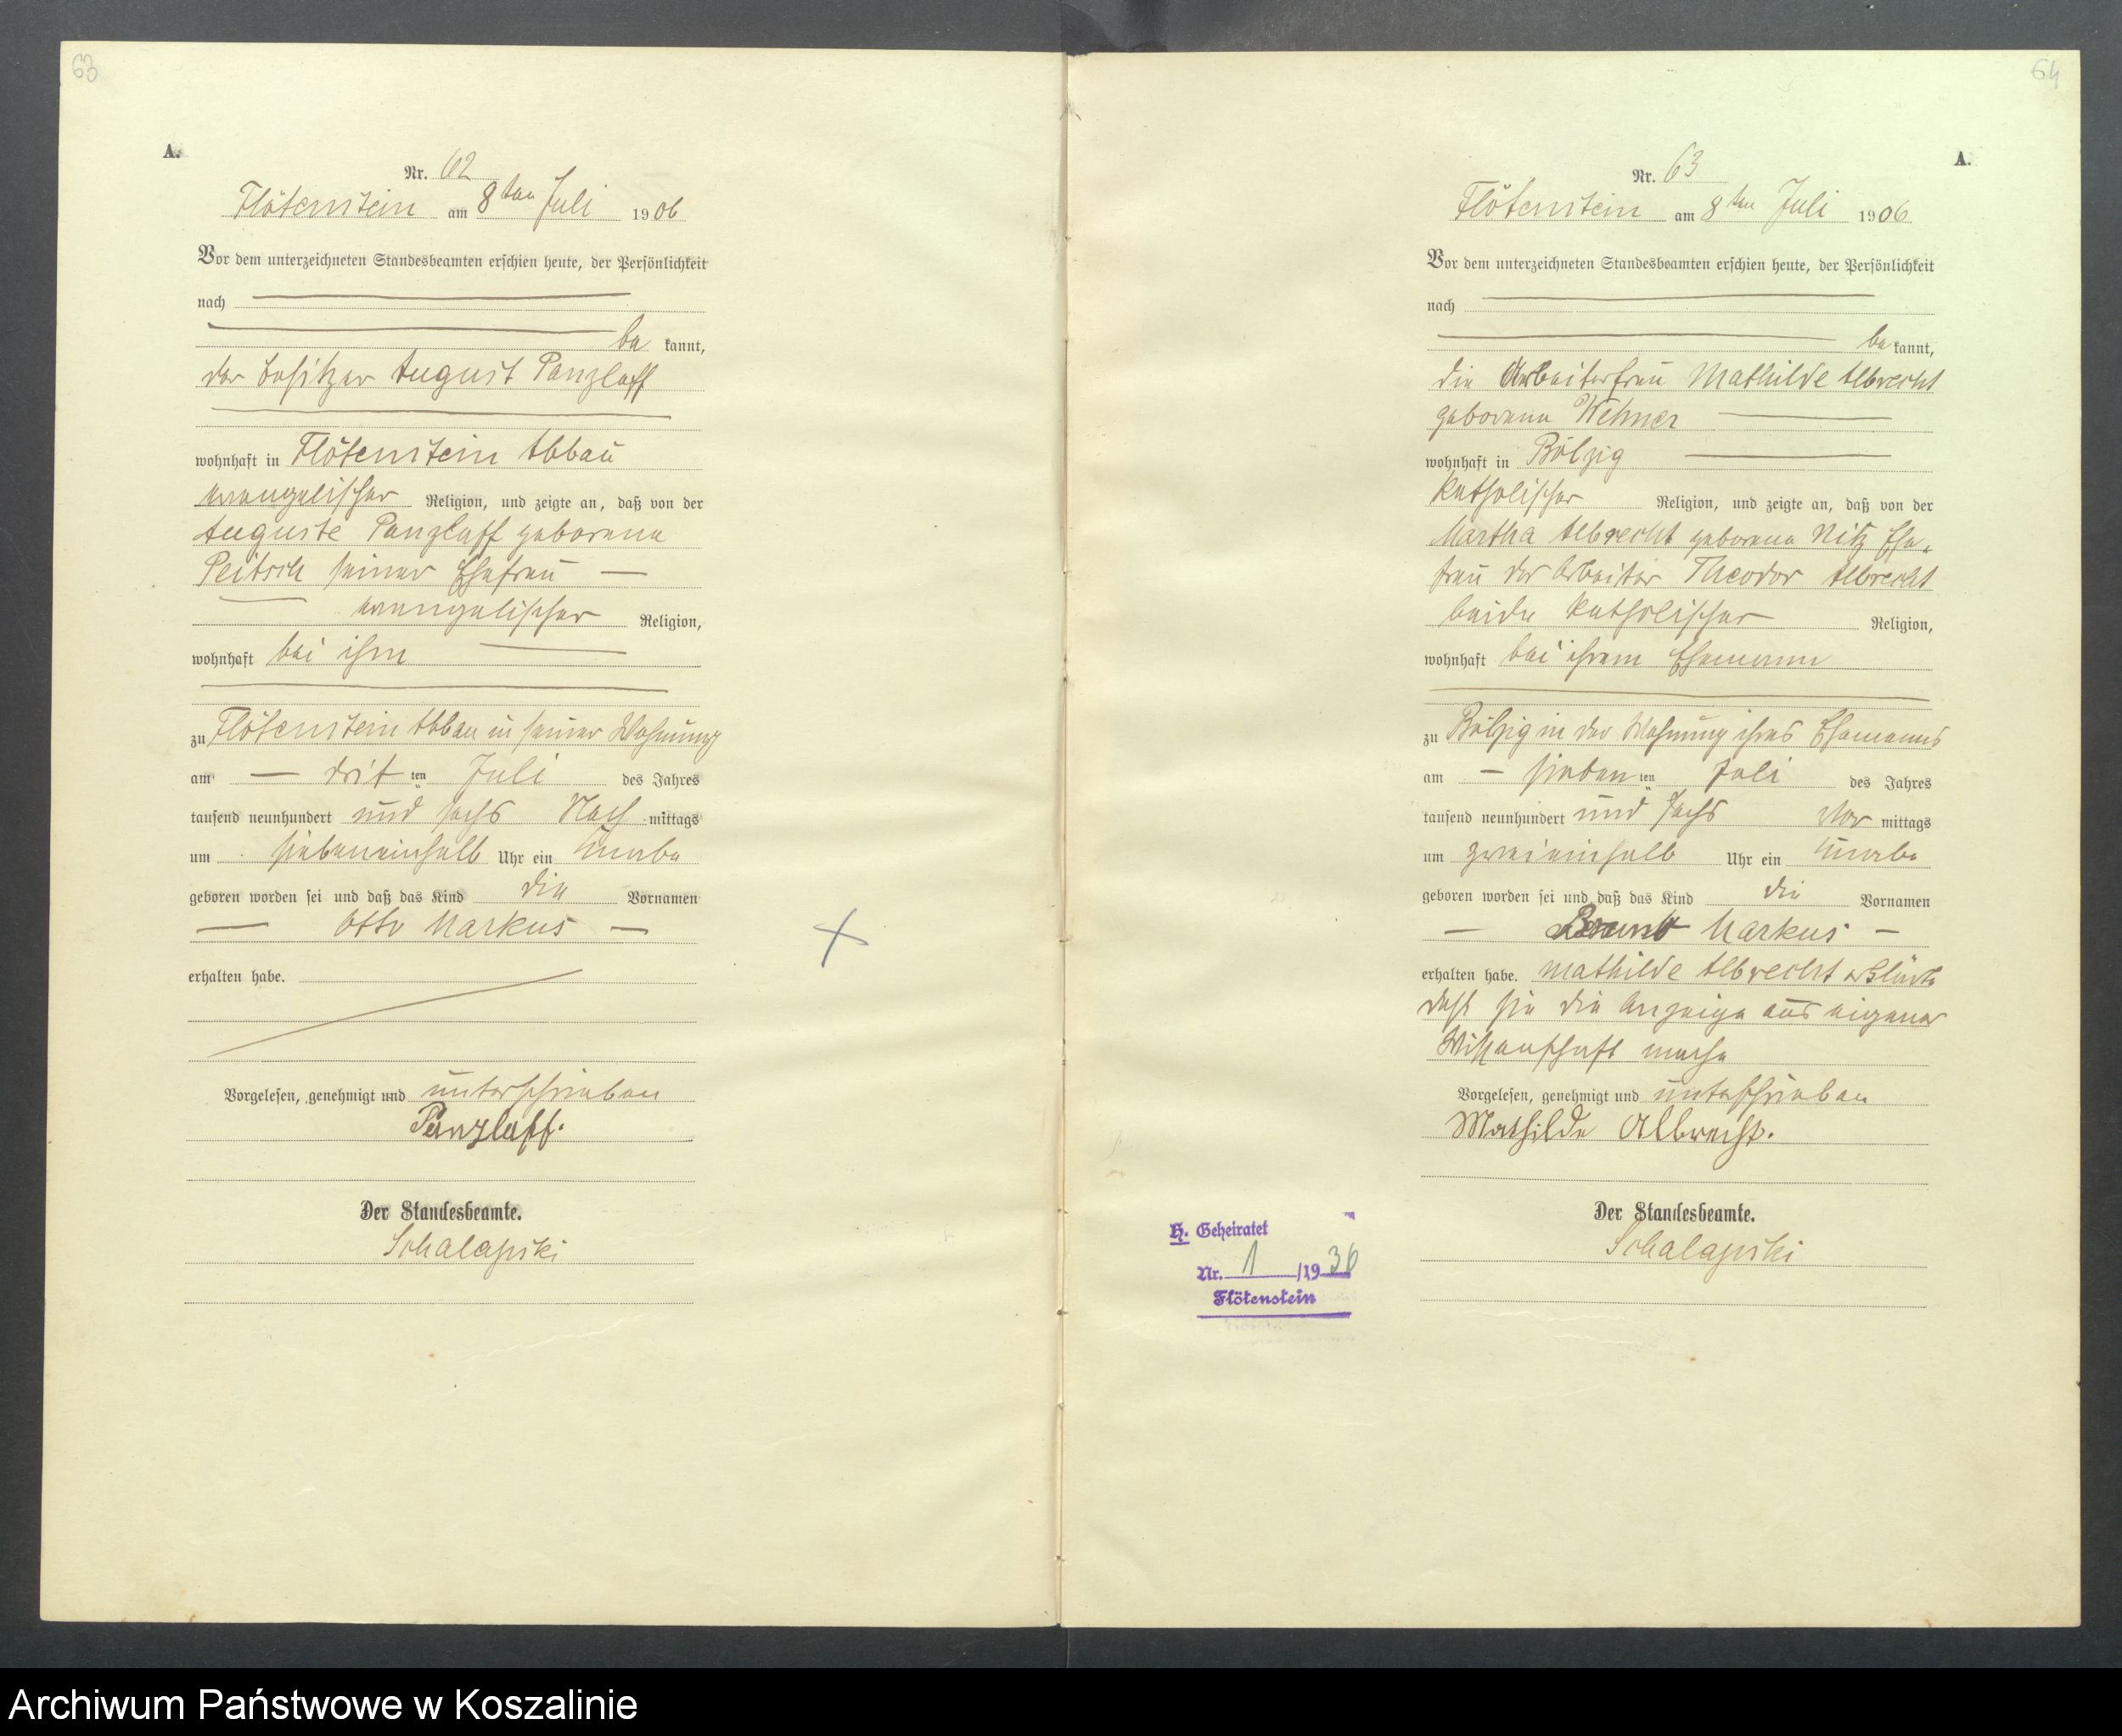 63
A.
Nr. 62
Flötenstein am 8ten Juli 1906
Vor dem unterzeichneten Standesbeamten erschien heute, der Persönlichkeit
nach
be kannt,
der Besitzer August Panzlaff
wohnhaft in Flötenstein Abbau
evangelischer Religion, und zeigte an, daß von der
Auguste Panzlaff geborene
Peitsch seiner Ehefrau
evangelischer Religion,
wohnhaft bei ihm
zu Flötenstein Abbau in seiner Wohnung
am drit ten Juli des Jahres
tausend neunhundert und sechs Nach mittags
um siebeneinhalb Uhr ein Knabe
geboren worden sei und daß das Kind die Vornamen
Otto Markus
erhalten habe.
Vorgelesen, genehmigt und unterschrieben
Panzlaff.
Der Standesbeamte.
Schalapski
64
A.
Nr. 63
Flötenstein am 8ten Juli 1906
Vor dem unterzeichneten Standesbeamten erschien heute, der Persönlichkeit
nach
be kannt,
die Arbeiterfrau Mathilde Albrecht
geborene Wehner
wohnhaft in Bölzig
katholischer Religion, und zeigte an, daß von der
Martha Albrecht geborene Nitz Ehe-
frau der Arbeiter Theodor Albrecht
beide katholischer Religion,
wohnhaft bei ihrem Ehemann
zu Bölzig in der Wohnung ihres Ehemanns
am sieben ten Juli des Jahres
tausend neunhundert und sechs Vor mittags
um zweieinhalb Uhr ein Knabe
geboren worden sei und daß das Kind die Vornamen
Bruno Markus
erhalten habe. Mathilde Albrecht erklärte
daß sie die Anzeige aus eigener
Wissenschaft mache
Vorgelesen, genehmigt und unterschrieben
Mathilde Albrecht.
Der Standesbeamte.
Schalapski
H. Geheiratet
Nr. 1 /1936
Flötenstein
Archiwum Państwowe w Koszalinie